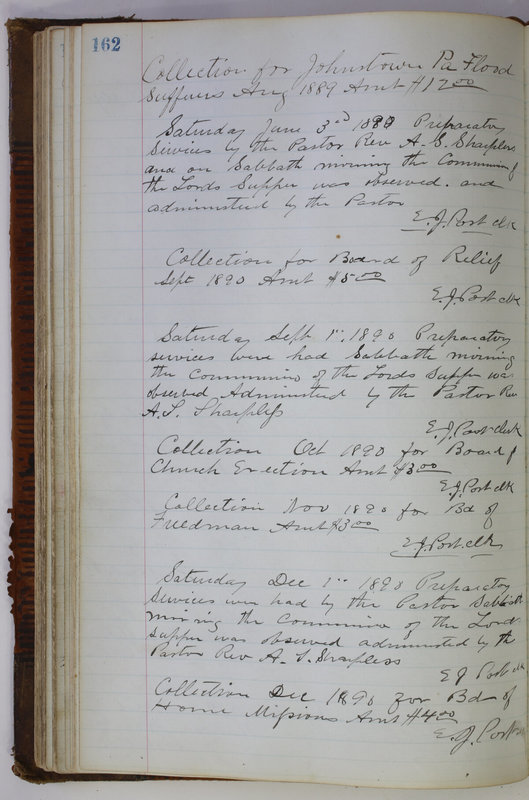 162
Collection for Johnstown Pa Flood
Sufferers Aug 1889 Amt $17 00
Saturday June 3rd 1889 Preparatory
Services by the Pastor Rev A. S. Sharpless
and on Sabbath morning the Communion of
the Lords Supper was observed. and
administered by the Pastor
E. J. Post clk
Collection for Board of Relief
Sept 1890 Amt $5 00
E. J. Post clk
Saturday Sept 1st. 1890 Preparatory
services were had Sabbath morning
the communion of the Lords Supper was
observed Administered by the Pastor Rev
A. S. Sharpless
E. J. Post Clerk
Collection Oct 1890 for Board of
Church Erection Amt $3 00
E J. Post clk
Collection Nov 1890 for Bd of
Freedman Amt $3 00
E. J. Post clk
Saturday Dec 1st 1890 Preparatory
Services were had by the Pastor Sabbath
morning the Communion of the Lords
Supper was observed administered by the
Pastor Rev A. S. Sharpless
E J Post clk
Collection Dec 1890 for Bd of
Home Missions Amt $4 00
E. J. Post